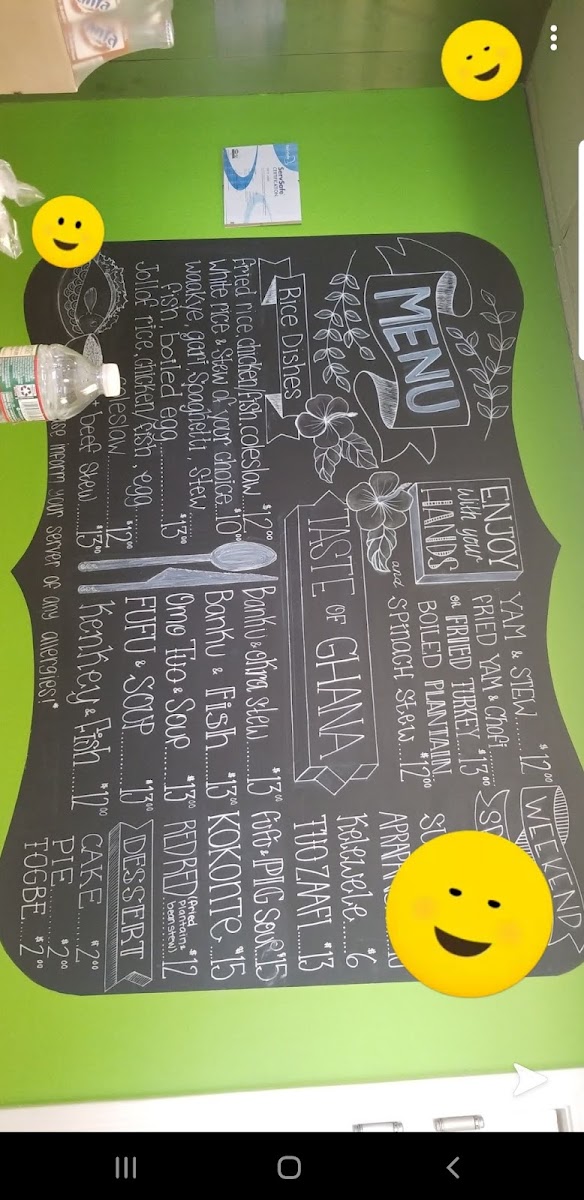 ServSafe
CERTIFICATION
MENU
Rice Dishes
fried rice, chicken/fish, coleslaw $12.00
white rice & stew of your choice $10.00
waakye, gari, spaghetti, stew
fish boiled egg......... $13.00
Jollof rice, chicken/fish, egg
coleslaw............ 12.00
beef stew...... 13.00
inform your server of any allergies!*
ENJOY
with your
HANDS
TASTE OF GHANA
YAM & STEW...... $12.00
FRIED YAM & Chofi
OR FRIED TURKEY... $13.00
BOILED PLANTAIN
and SPINACH Stew... $12.00
Banku & Okra stew...... $13.00
Banku & Fish........ $13.00
Omo Tuo & Soup...... $13.00
FUFU & SOUP............ $13.00
Kenkey & Fish...... $12.00
WEEKEND
Kelewele...... $6
TUO ZAAFI.... $13
Fufu & PIG Soup $15
KOKONTE.... $15
RED RED (fried plantain & bean stew) $12
DESSERT
CAKE...... $2.00
PIE...... $2.00
TOGBE.... $2.00